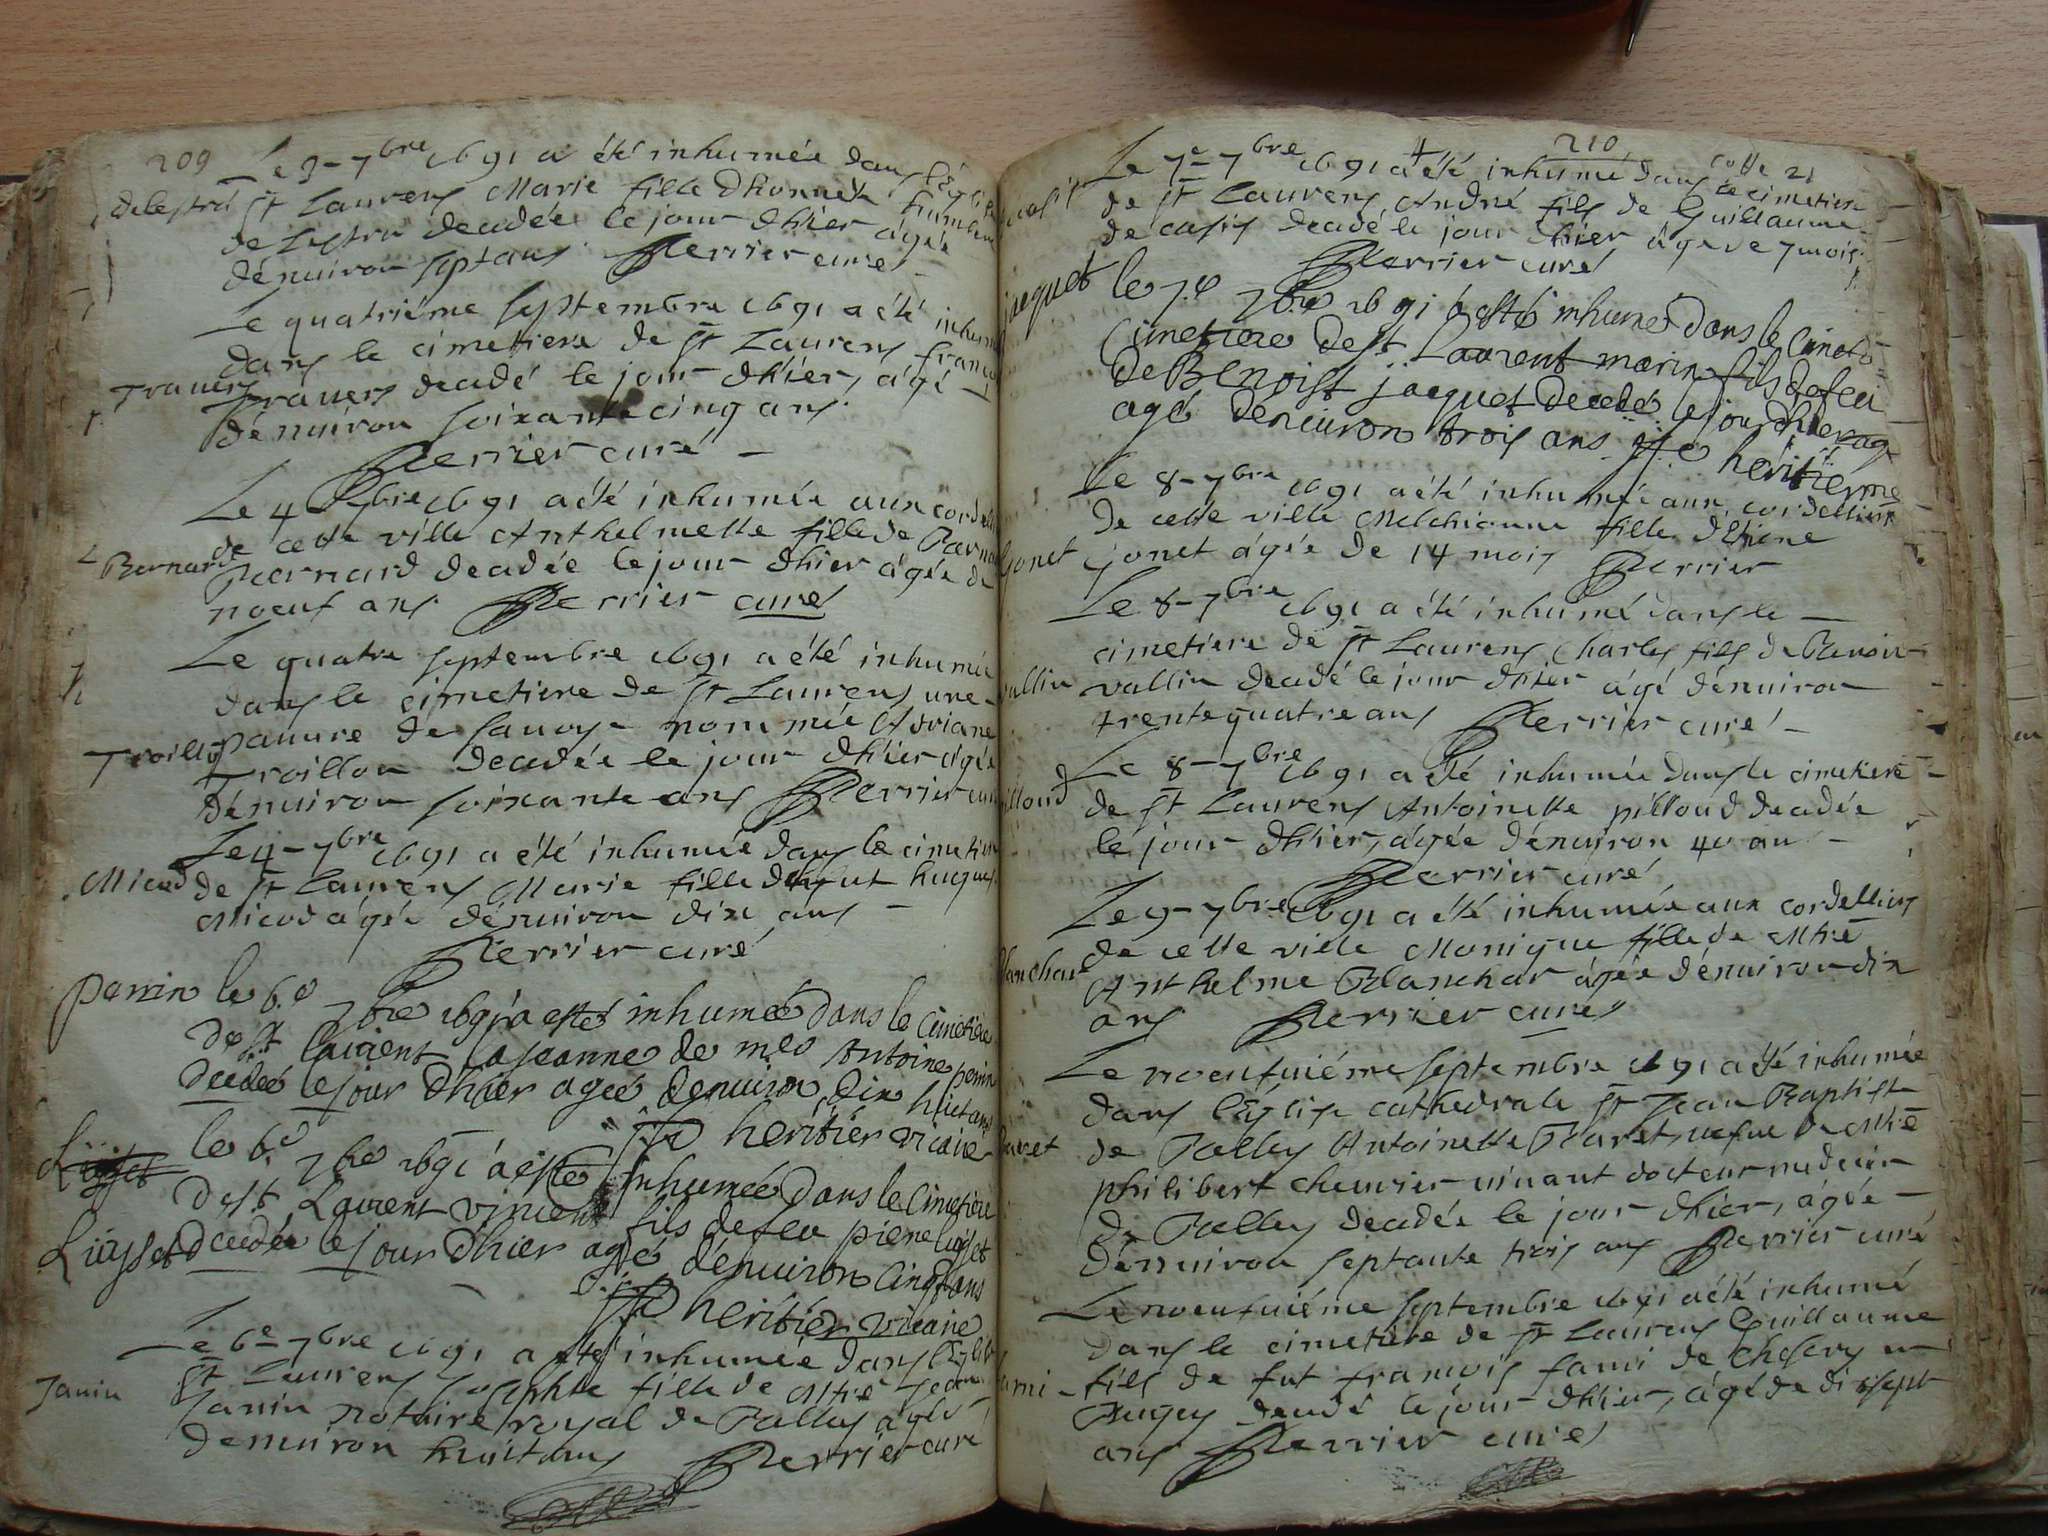 209
Le 3 - 7bre 1691 a été inhumée dans l'Église
delestra St Laurens Marie fille dhonnete humber
de lestra decedée le jour dhier agée
dénuiron sept ans Perrier curé
Le quatriéme septembre 1691 a été inhumé
dans le cimetiere de St Laurens françois
Trauers
trauers decedé le jour dhier, agé
dénuiron soixante cinq ans
Perrier curé
Le 4 7bre 1691 a été inhumée aux cordel
de cette ville Anthelmette fille de Bernard
Bernard
Bernard decedée le jour dhier agée de
noeuf ans Perrier curé
Le quatre septembre 1691 a été inhumée
dans le cimetiere de St Laurens une
pauure de sauoye nommée Adriane
Troillon
Troillon decedée le jour dhier agée
dénuiron soixante ans Perrier curé
Le 4 - 7bre 1691 a été inhumée dans le cimetiere
Micod de St Laurens Marie fille de fut hugues
Micod agée dénuiron dix ans
Perrier curé
perrin le 6.e 7bre 1691 a esté inhumeé dans le cimetiere
de St laurent la jeanne de Antoine perrin
decedeé le jour dhier ageé denuiron dix huict ans
heritier vicaire
le 6.e 7bre 1691 a esté inhumeé dans le cimetiere
de St Laurent vincent fils de feu pierre luysset
Luysset decedée le jour dhier agé dénuiron cinq ans
heritier vicaire
Le 6e 7bre 1691 a été inhumée dans l'Église
St Laurens Josephte fille de Mtre Jean
Janin
Janin notaire royal de Belley agée
denuiron huict ans Perrier curé
210
cotte 21
Le 7e 7bre 1691 a été inhumé dans le cimetiere
de St Laurens André fils de Guillaume
de casis decedé le jour dhier agé de 7 mois
Perrier curé
jacquet le 7.e 7bre 1691 a esté inhumé dans le cimeti
Cimetiere de St Laurent marin fils de feu
de Benoist jacquet decedé le jour dhier ag
agé denuiron trois ans heritier
Le 8 - 7bre 1691 a été inhumée aux cordelliers
de cette ville Melchionne fille dEtiene
Gonet
gonet agée de 14 mois Perrier
Le 8 - 7bre 1691 a été inhumé dans le
cimetiere de St Laurens Charles fils de Benoit
vallin
vallin decedé le jour dhier agé dénuiron
trente quatre ans Perrier curé
Le 8 - 7bre 1691 a été inhumée dans le cimetiere
pilloud
de St Laurens Antoinette pilloud decedée
le jour dhier, agée dénuiron 40 an
Perrier curé
Le 9 - 7bre 1691 a été inhumée aux cordelliers
de cette ville Monique fille de Mtre
Blanchar
Anthelme Blanchar agée dénuiron dix
ans Perrier curé
Le noeufuiéme septembre 1691 a été inhumée
dans l'Église cathedrale St Jean Baptiste
Baret
de Belley Antoinette Baret, uefue de Mtre
philibert cheurier uiuant docteur medecin
de Belley decedée le jour dhier, agée
dénuiron septante trois ans Perrier curé
Le noeufuiéme septembre 1691 a été inhumé
dans le cimetiere de St Laurens Guillaume
fami
fils de fut francois fami de Chesery en
Bugey decedé le jour dhier, agé de dix sept
ans Perrier curé